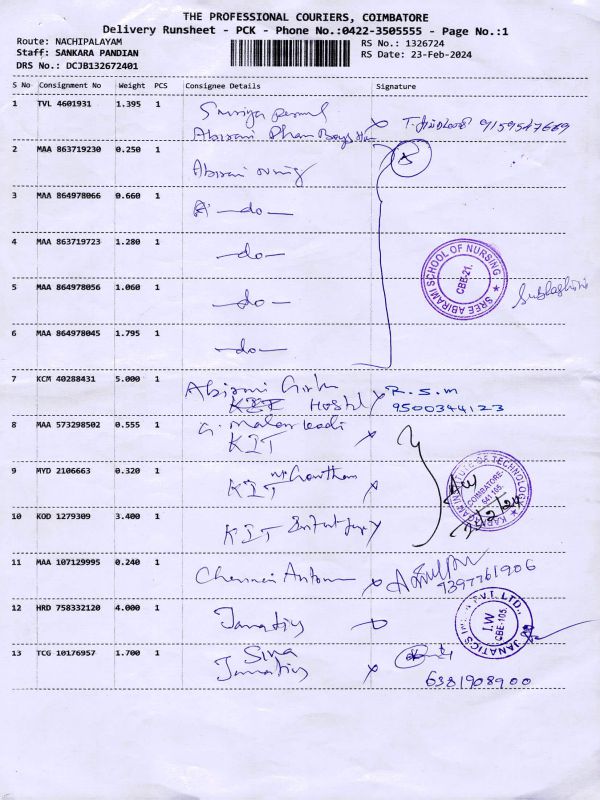 THE PROFESSIONAL COURIERS, COIMBATORE
Delivery Runsheet - PCK - Phone No.:0422-3505555 - Page No.:1
Route: NACHIPALAYAM
Staff: SANKARA PANDIAN
DRS No.: DCJB132672401
RS No.: 1326724
RS Date: 23-Feb-2024
S No Consignment No Weight PCS Consignee Details Signature
1 TVL 4601931 1.395 1
Abirami Boys 9159547669
2 MAA 863719230 0.250 1 Abirami
3 MAA 864978066 0.660 1 -do-
4 MAA 863719723 1.280 1 -do-
SREE ABIRAMI SCHOOL OF NURSING
CBE-21.
5 MAA 864978056 1.060 1 -do-
6 MAA 864978045 1.795 1 -do-
7 KCM 40288431 5.000 1 Abirami R.S.M
Hostel 9500344123
8 MAA 573298502 0.555 1
KIT
9 MYD 2106663 0.320 1 Gowtham
KIT
INSTITUTE OF TECHNOLOGY
COIMBATORE-
641 105.
10 KOD 1279309 3.400 1 KIT
11 MAA 107129995 0.240 1 Chennai
7397761906
12 HRD 758332120 4.000 1 Janatics
JANATICS PVT. LTD.,
I.W
CBE-105.
13 TCG 10176957 1.700 1 Siva
Janatics
6381908900